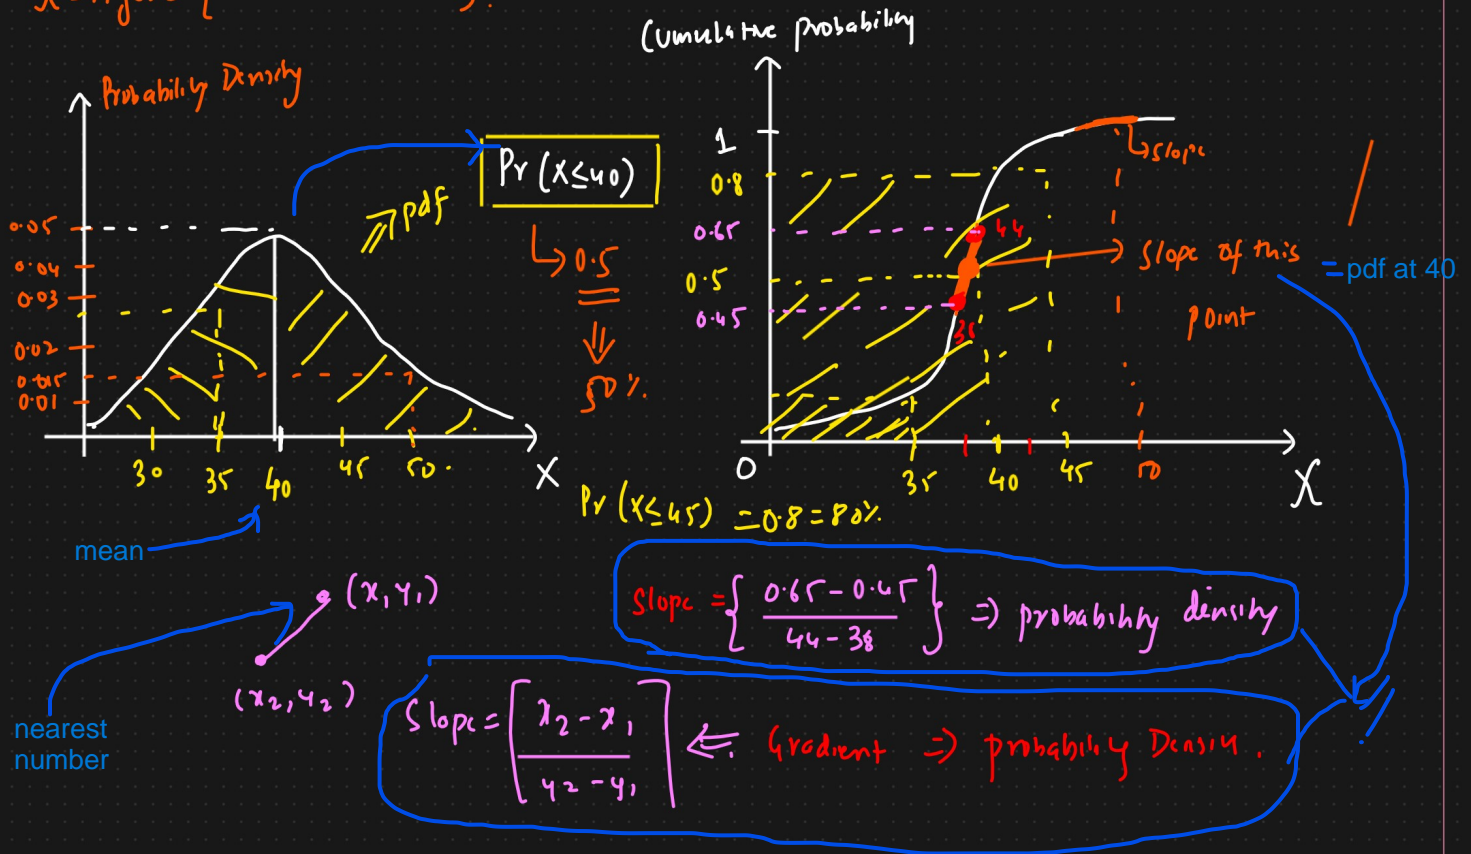 Cumulative probability
Probability Density
Pr (X≤40)
pdf
0.5
50%
0.05
0.04
0.03
0.02
0.015
0.01
30
35
40
45
50
X
mean
1
0.8
0.65
0.5
0.45
44
38
slope
Slope of this
point
= pdf at 40
0
35
40
45
50
X
Pr (X≤45) = 0.8 = 80%
Slope = { 0.65 - 0.45 / 44 - 38 } => probability density
(x1, y1)
(x2, y2)
nearest
number
Slope = [ x2 - x1 / y2 - y1 ] <= Gradient => probability